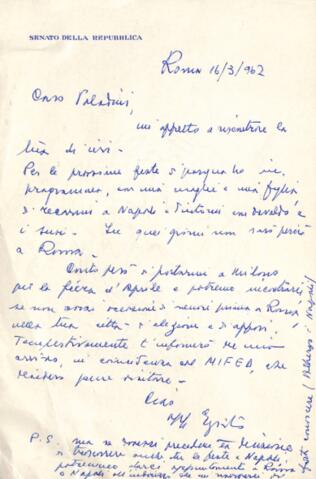 SENATO DELLA REPUBBLICA
Roma 16/3/962
Caro Paladini,
mi affretto a riscontrare la
tua di ieri.
Per le prossime feste di pasqua ho in
programma, con mia moglie e mia figlia
di recarmi a Napoli e dintorni con
i suoi. In quei giorni non sarò perciò
a Roma.
Conto però di portarmi a Milano
per la fiera d'Aprile e potremo incontrarci
se non avrai occasione di venire prima a Roma
nella tua città di elezione e di
Tempestivamente t'informerò del mio
arrivo, in coincidenza col MIFED, che
desidero pure visitare.
Ciao
P.S. ma se dovessi prendere la decisione
di trascorrere anche tu le feste a Napoli
potremmo darci appuntamento a Roma
o Napoli